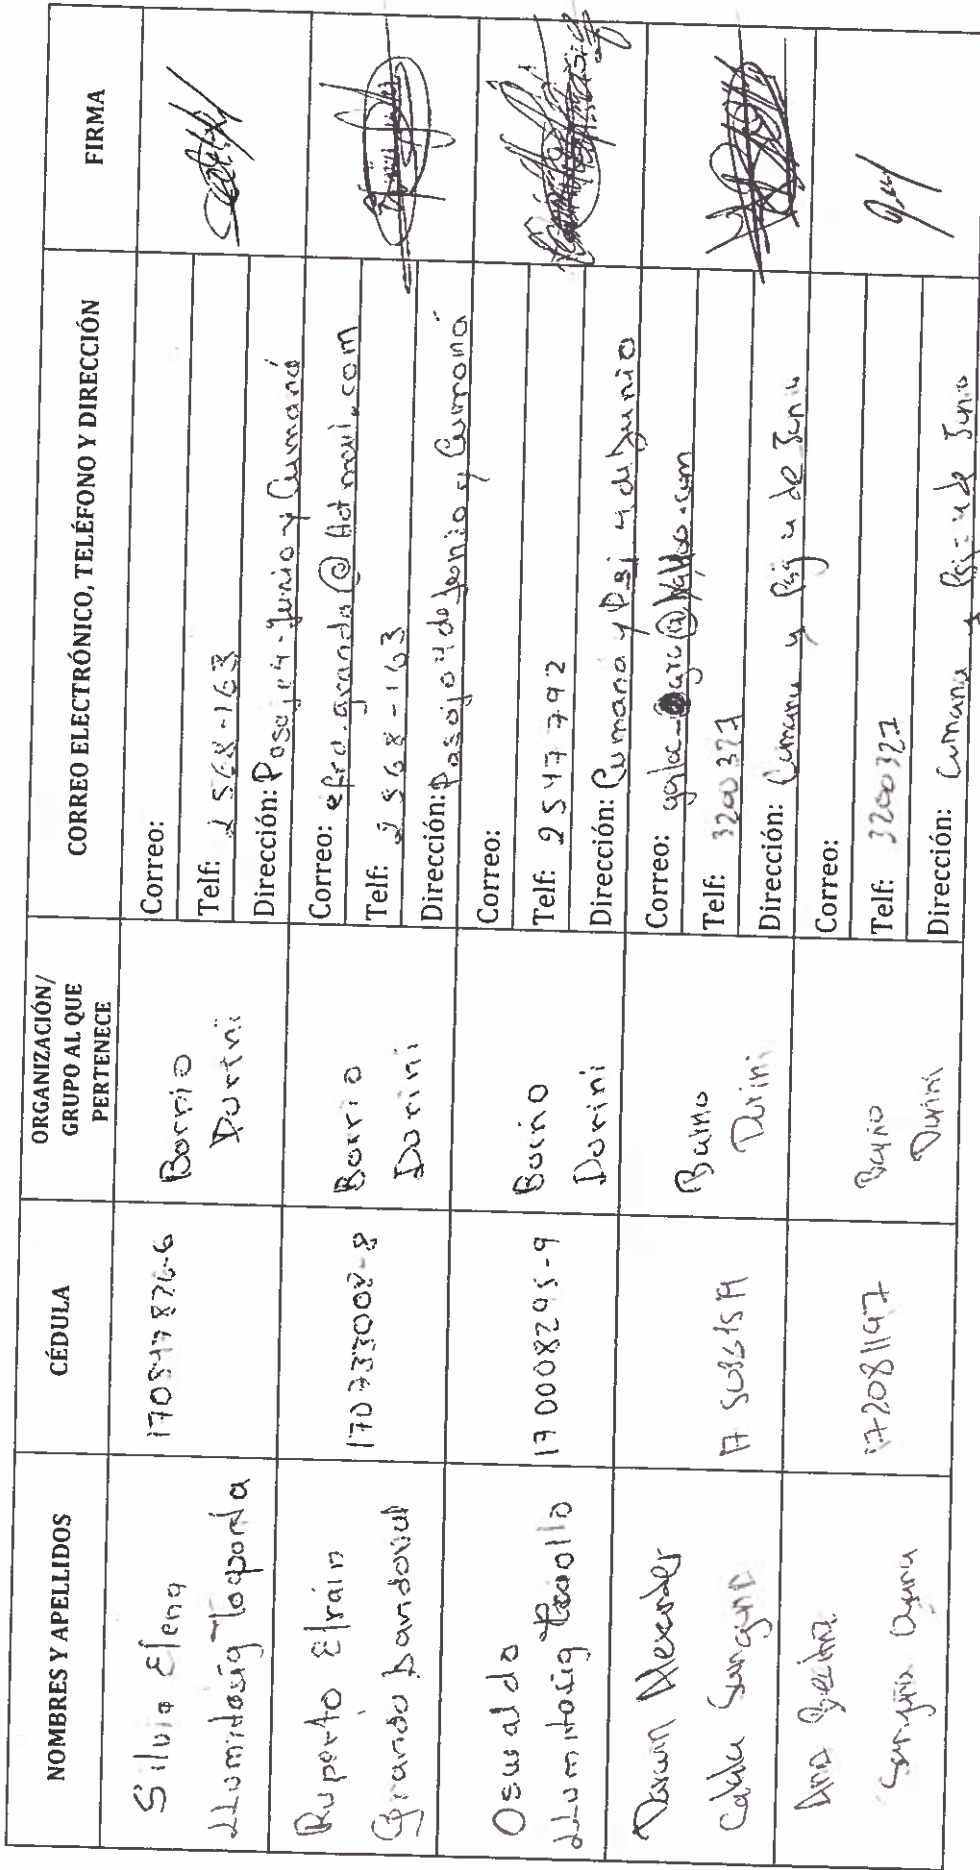 NOMBRES Y APELLIDOS
CÉDULA
ORGANIZACIÓN/
GRUPO AL QUE
PERTENECE
CORREO ELECTRÓNICO, TELÉFONO Y DIRECCIÓN
FIRMA
Silvia Elena
LLumitasig Toaponta
170547826-6
Barrio
Durini
Correo:
Telf: 2568-163
Dirección: Pasaje 4-Junio y Cumaná
Ruperto Efraín
Granda Sandoval
170733008-8
Barrio
Durini
Correo: efra.granda@Hotmail.com
Telf: 2568-163
Dirección: Pasaje 4 de Junio y Cumaná
Oswaldo
LLumitasig
170008295-9
Barrio
Durini
Correo:
Telf: 2547792
Dirección: Cumana y Psj 4 de Junio
Darwin Alexander
17
Barrio
Durini
Correo:
Telf: 3200327
Dirección: Cumana y Psj 4 de Junio
Ana
1720811197
Barrio
Durini
Correo:
Telf: 3200327
Dirección: Cumana y Psj- 4 de Junio